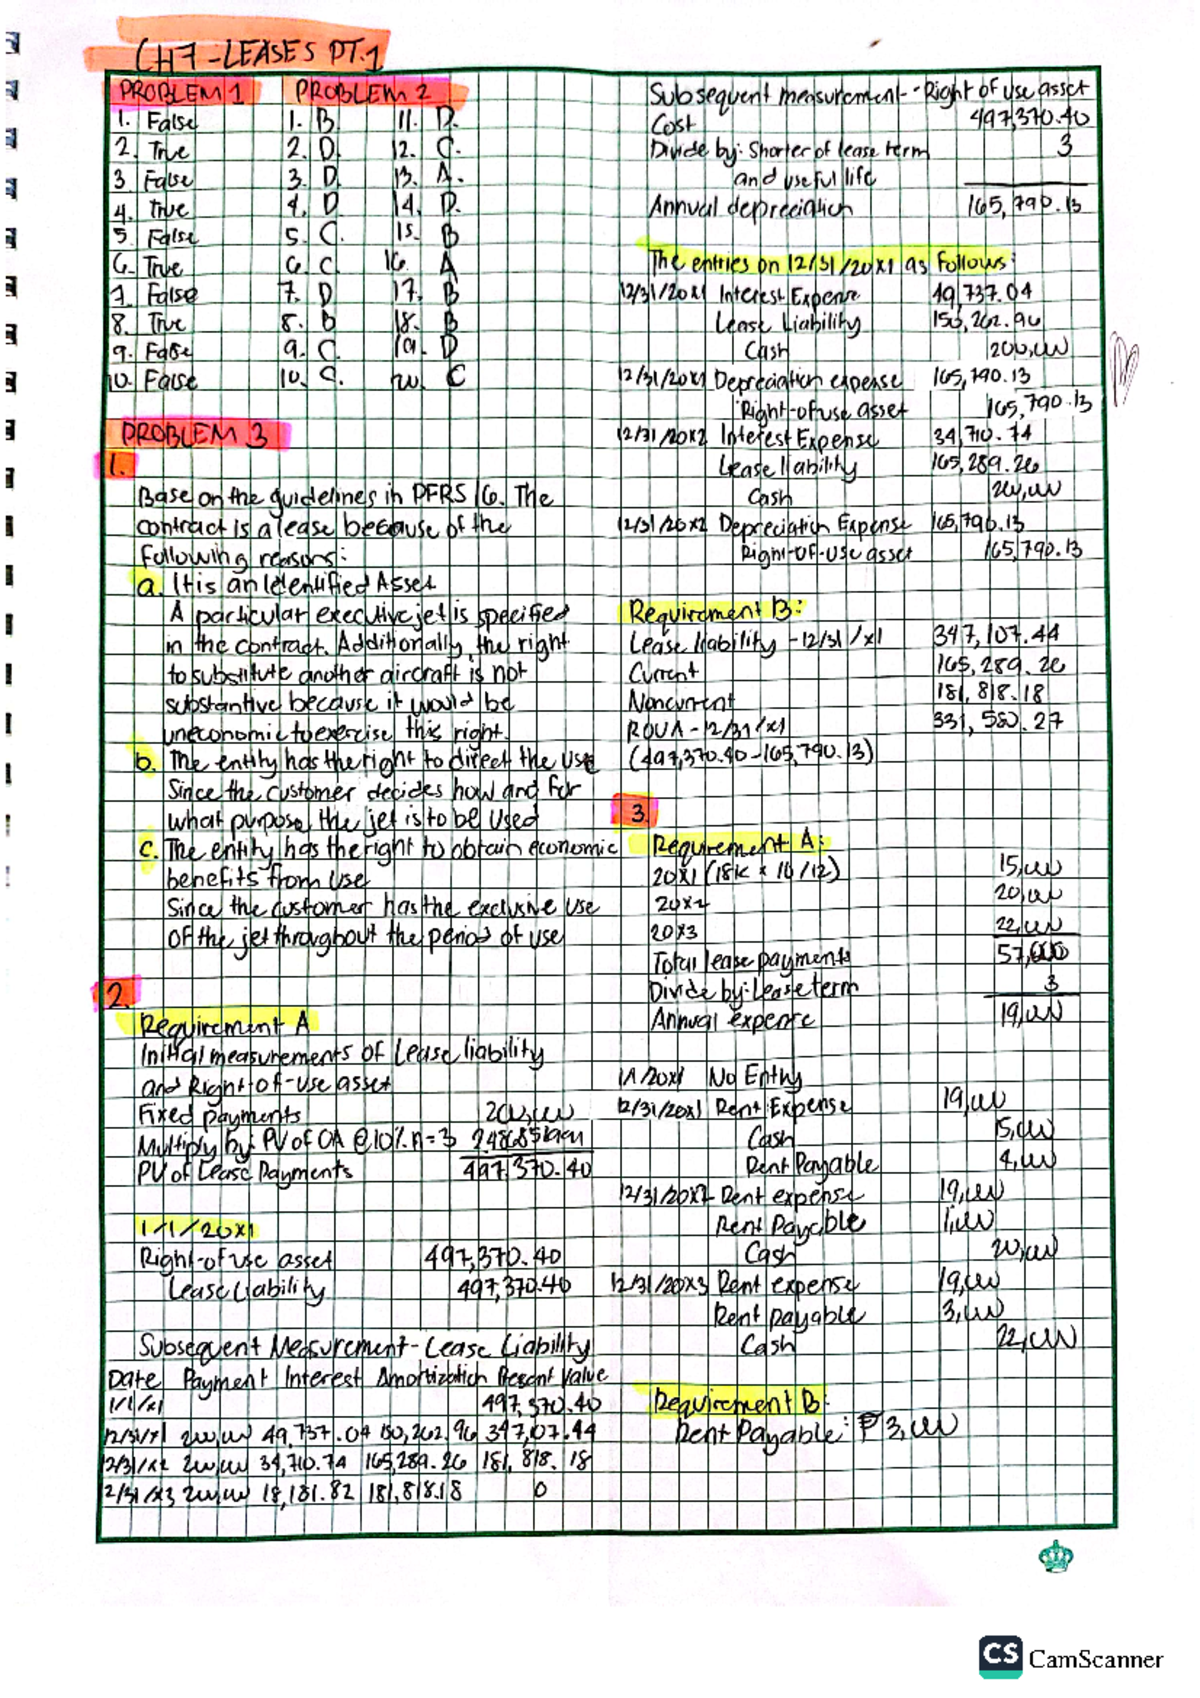 CH7-LEASES PT.1
PROBLEM 1 PROBLEM 2
1. False 1. B. 11. D.
2. True 2. D. 12. C.
3. False 3. D. 13. A.
4. True 4. D 14. D.
5. False 5. C. 15. B
6. True 6. C. 16. A
7. False 7. D 17. B
8. True 8. B 18. B
9. False 9. C. 19. D
10. False 10. C. 20. C
PROBLEM 3
1.
Base on the guidelines in PFRS 16. The
contract is a lease because of the
following reasons:
a. It is an Identified Asset
A particular executive jet is specified
in the contract. Additionally, the right
to substitute another aircraft is not
substantive because it would be
uneconomic to exercise this right.
b. The entity has the right to direct the use
Since the customer decides how and for
what purpose the jet is to be used
c. The entity has the right to obtain economic
benefits from use
Since the customer has the exclusive use
of the jet throughout the period of use
2.
Requirement A
Initial measurements of Lease liability
and Right-of-use asset
Fixed payments 200,000
Multiply by: PV of OA @10% n=3 2.48685199
PV of Lease Payments 497,370.40
1/1/20x1
Right-of use asset 497,370.40
Lease Liability 497,370.40
Subsequent Measurement-Lease Liability
Date Payment Interest Amortization Present Value
1/1/x1 497,370.40
12/31/x1 200,000 49,737.04 150,262.96 347,107.44
12/31/x2 200,000 34,710.74 165,289.26 181,818.18
12/31/x3 200,000 18,181.82 181,818.18 0
Subsequent measurement--Right of use asset
Cost 497,370.40
Divide by: Shorter of lease term 3
and useful life
Annual depreciation 165,790.13
The entries on 12/31/20x1 as follows:
12/31/20x1 Interest Expense 49,737.04
Lease Liability 150,262.96
Cash 200,000
12/31/20x1 Depreciation expense 165,790.13
Right-of use asset 165,790.13
12/31/20x2 Interest Expense 34,710.74
Lease liability 165,289.26
Cash 200,000
12/31/20x2 Depreciation Expense 165,790.13
Right-of-use asset 165,790.13
Requirement B:
Lease liability - 12/31/x1 347,107.44
Current 165,289.26
Noncurrent 181,818.18
ROUA - 12/31/x1 331,580.27
(497,370.40-165,790.13)
3.
Requirement A:
20x1 (18k x 10/12) 15,000
20x2 20,000
20x3 22,000
Total lease payments 57,000
Divide by: Lease term 3
Annual expense 19,000
1/1/20x1 No Entry
12/31/20x1 Rent Expense 19,000
Cash 15,000
Rent Payable 4,000
12/31/20x2 Rent expense 19,000
Rent Payable 1,000
Cash 20,000
12/31/20x3 Rent expense 19,000
Rent payable 3,000
Cash 22,000
Requirement B:
Rent Payable: ₱3,000
CS CamScanner